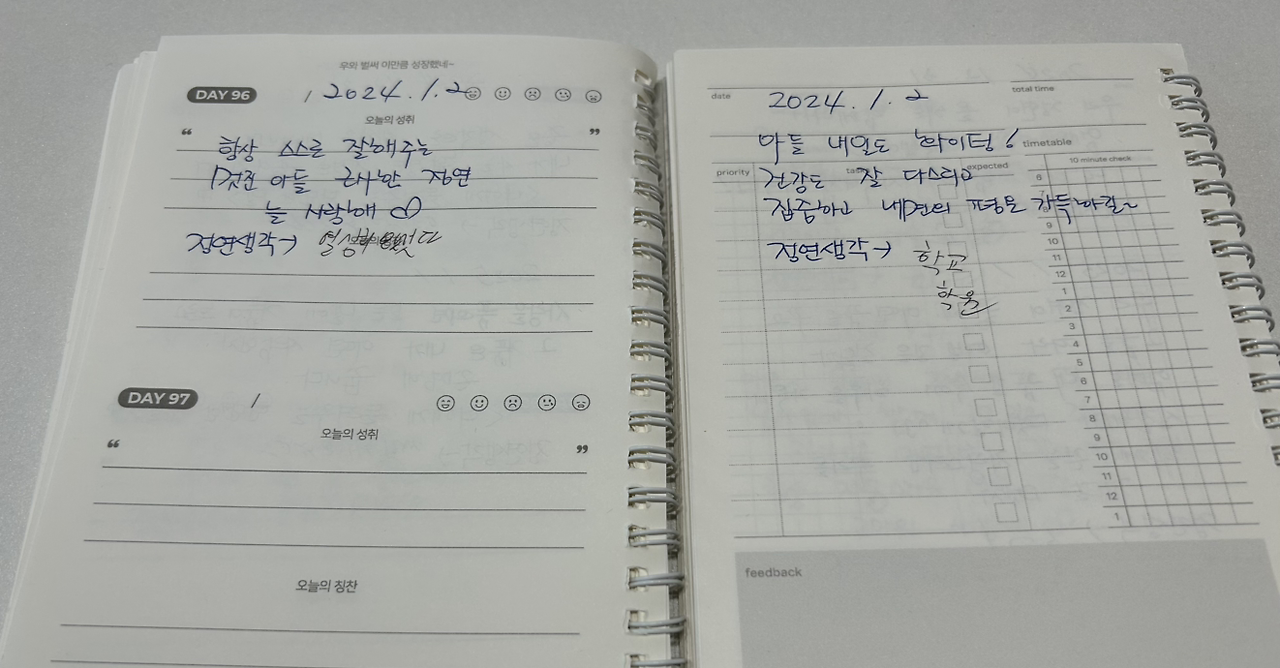 우와 벌써 이만큼 성장했네~
DAY 96 / 2024.1.2
오늘의 성취
“ ”
항상 스스로 잘해주는
멋진 아들 근사한 정연
늘 사랑해 ♡
정연생각→
DAY 97 /
오늘의 성취
“ ”
오늘의 칭찬
date 2024.1.2 total time
아들 내일도 화이팅! timetable
priority task expected 10 minute check
건강도 잘 다스리고
집중하고 내면의 평온 가득하길~
정연생각→ 학교
학원
6
7
9
10
11
12
1
2
3
4
5
6
7
8
9
10
11
12
1
feedback